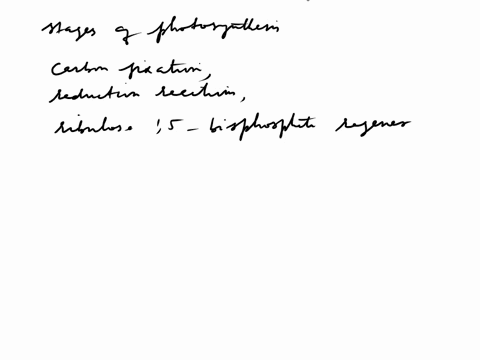 stages of photosynthesis
carbon fixation,
reduction reaction,
ribulose 1,5 - bisphosphate regener